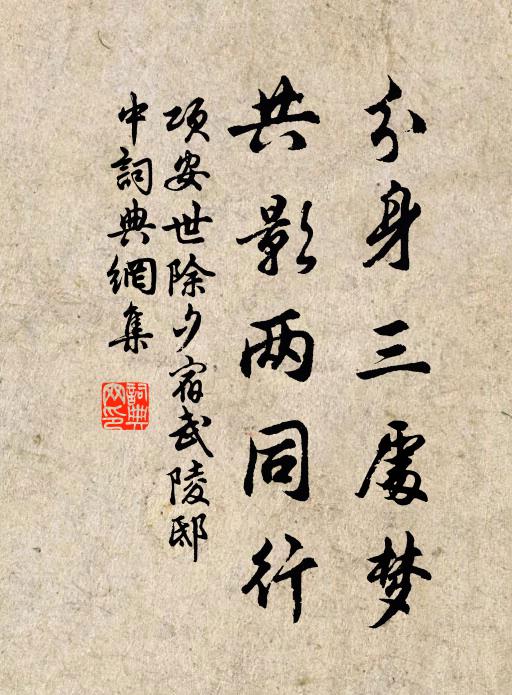 分身三處梦
共影两同行
项安世除夕宿武陵邸
中詞典網集
詞典网印